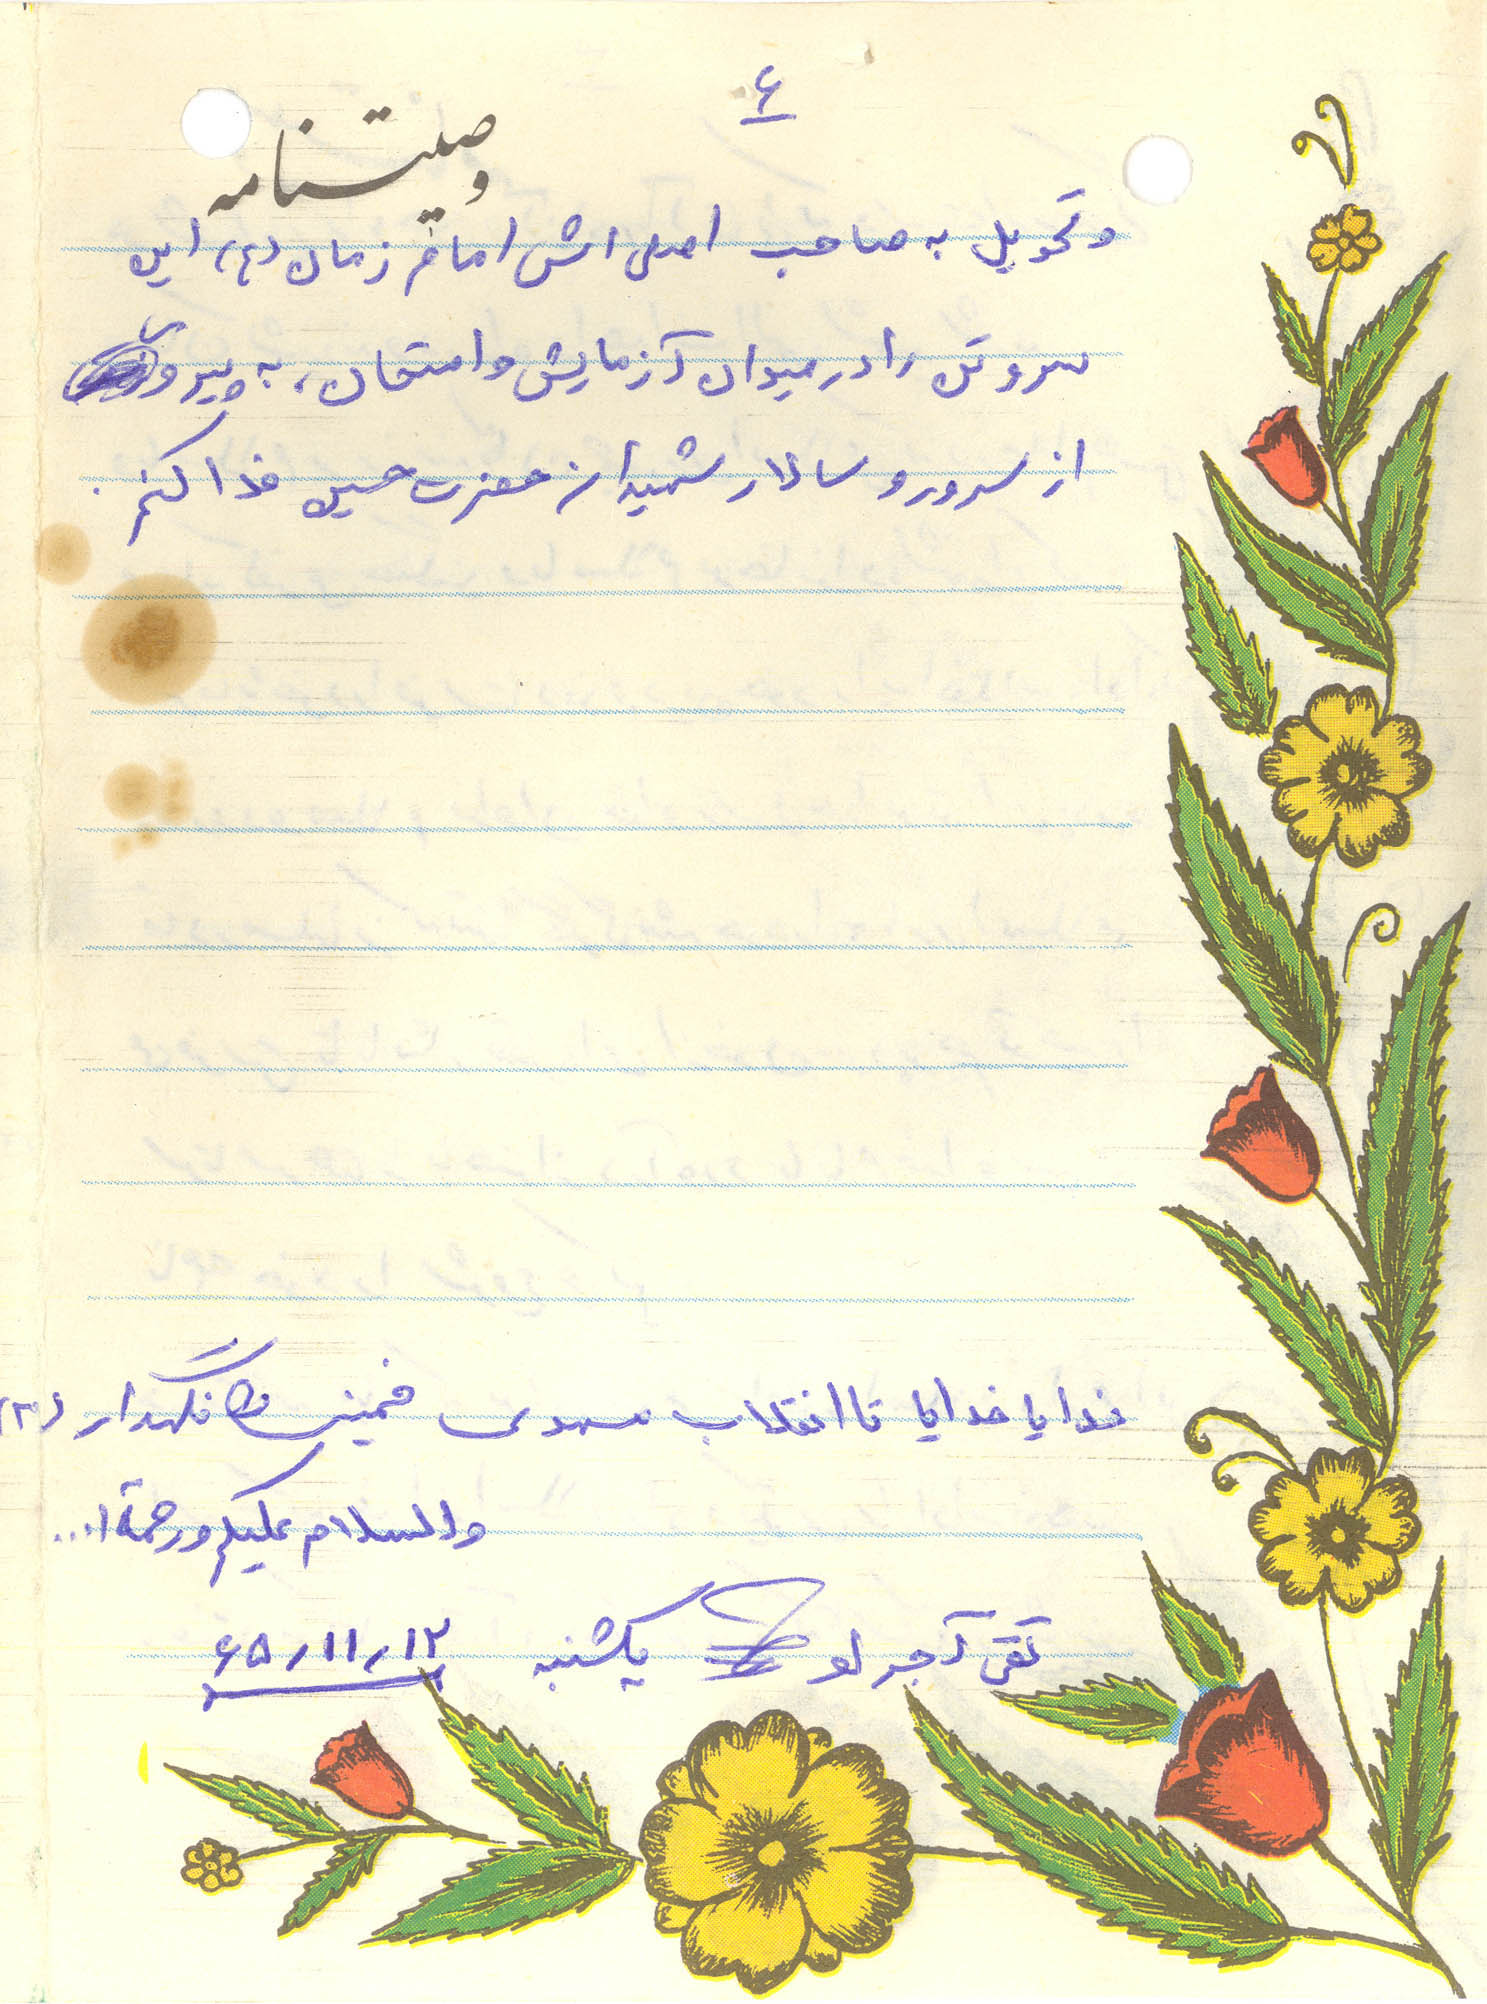 ۶
وصیتنامه
و تحویل به صاحب اصلی اش امام زمان (عج) این
سر و تن را در میدان آزمایش و امتحان، به پیروی
از سرور و سالار شهیدان حضرت حسین فدا کنم.
خدایا خدایا تا انقلاب مهدی خمینی را نگهدار (۳)
والسلام علیکم و رحمة ا...
تقی آجرلو یکشنبه ۶۵/۱۱/۱۲